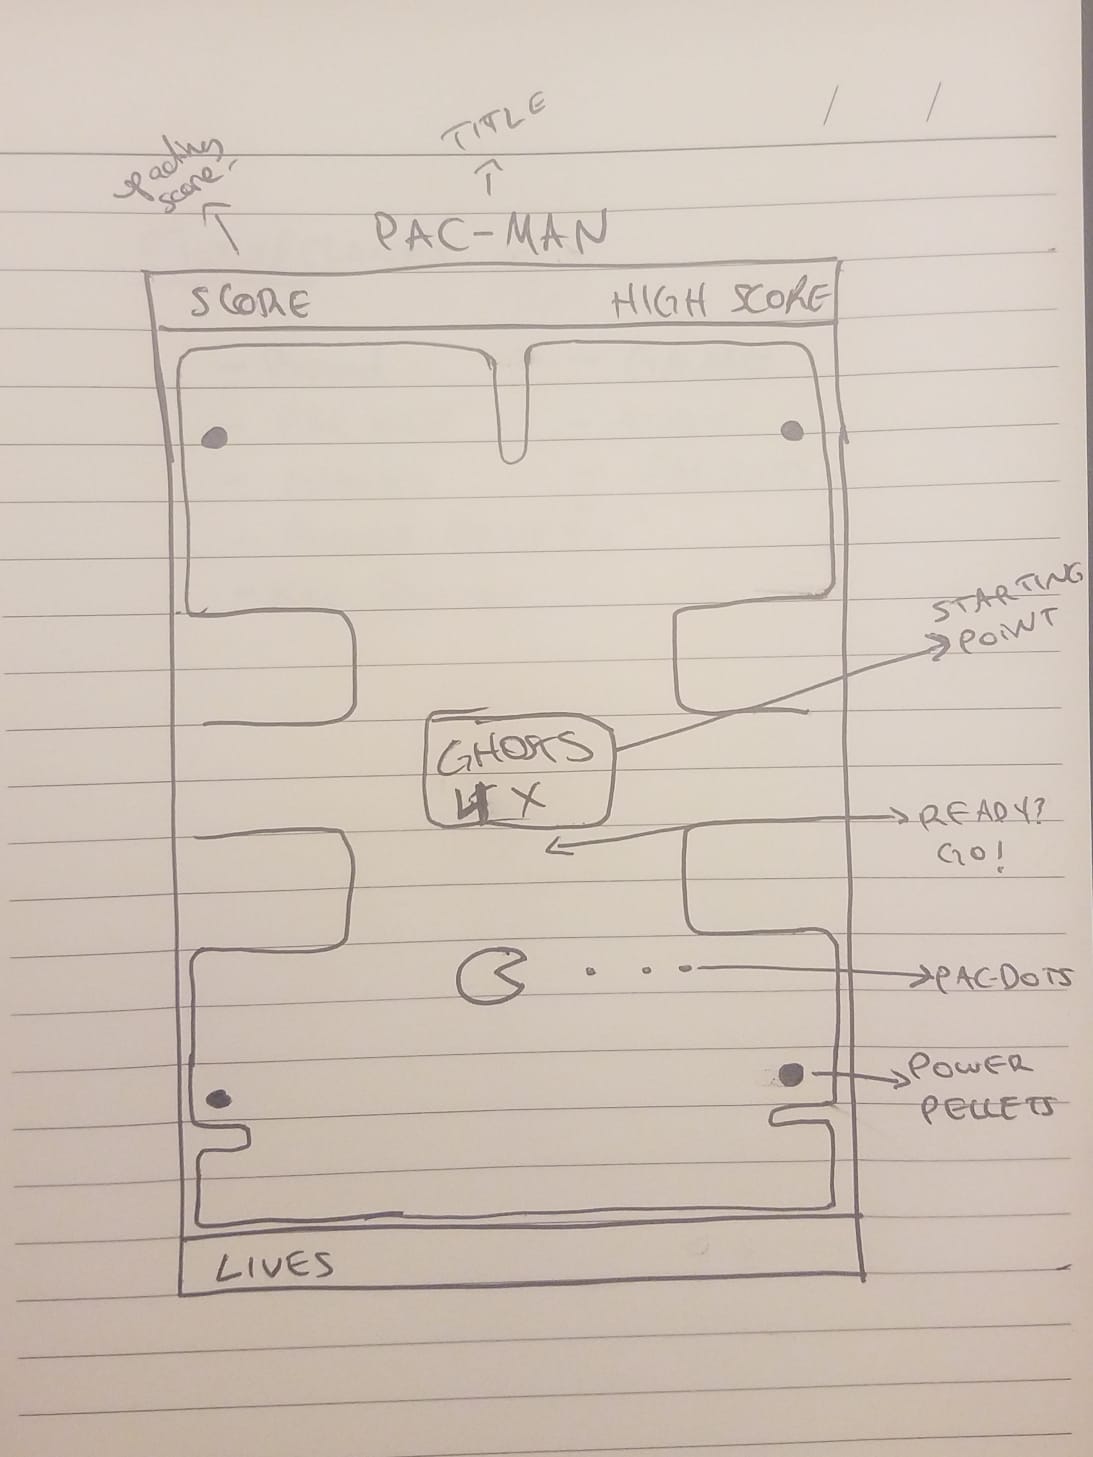 TITLE
score!
PAC-MAN
SCORE
HIGH SCORE
STARTING
POINT
GHOSTS
4 X
READY?
GO!
PAC-DOTS
POWER
PELLETS
LIVES